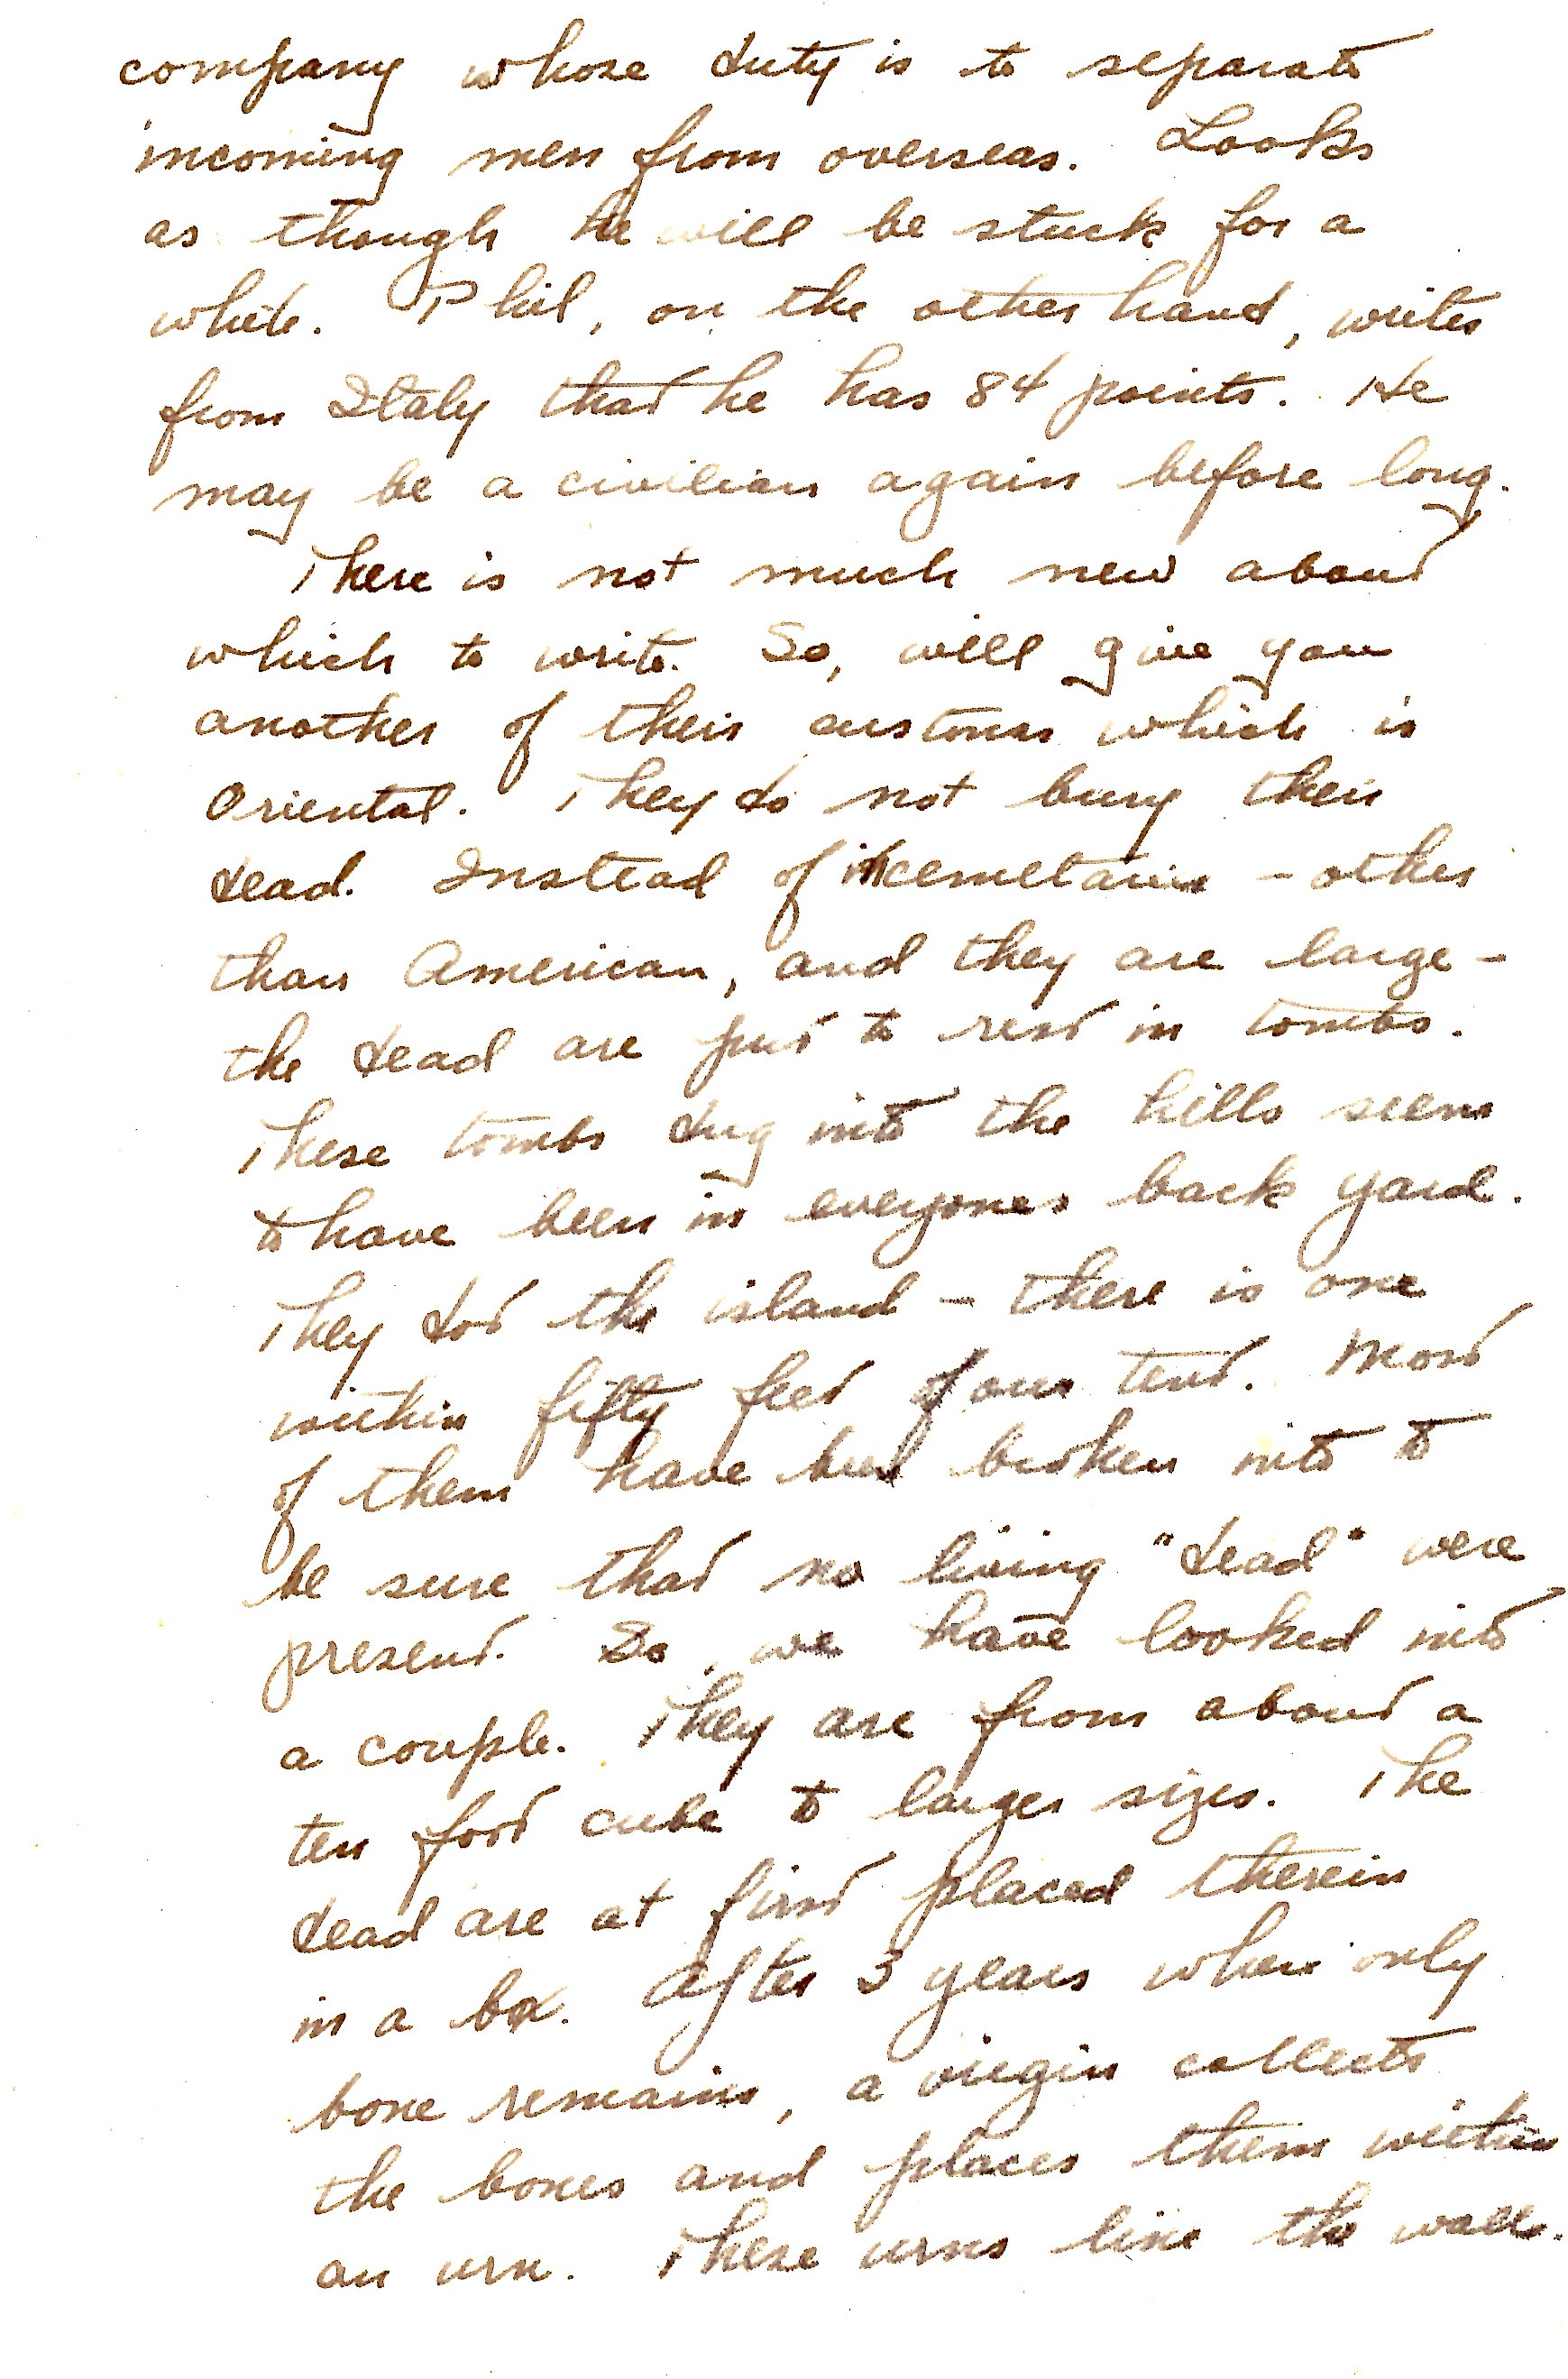 company whose duty is to separate
incoming men from overseas. Looks
as though he will be stuck for a
while. Phil, on the other hand, writes
from Italy that he has 84 points. He
may be a civilian again before long.
There is not much new about
which to write. So, will give you
another of their customs which is
Oriental. They do not bury their
dead. Instead of cemetaries - other
than American, and they are large -
the dead are put to rest in tombs.
These tombs dug into the hills seem
to have been in everyones back yard.
They dot the island - there is one
within fifty feet of our tent. Most
of them have been broken into to
be sure that no living "dead" were
present. So, we have looked into
a couple. They are from about a
ten foot cube to larger sizes. The
dead are at first placed therein
in a box. After 3 years when only
bone remains, a virgin collects
the bones and places them within
an urn. These urns line the wall.